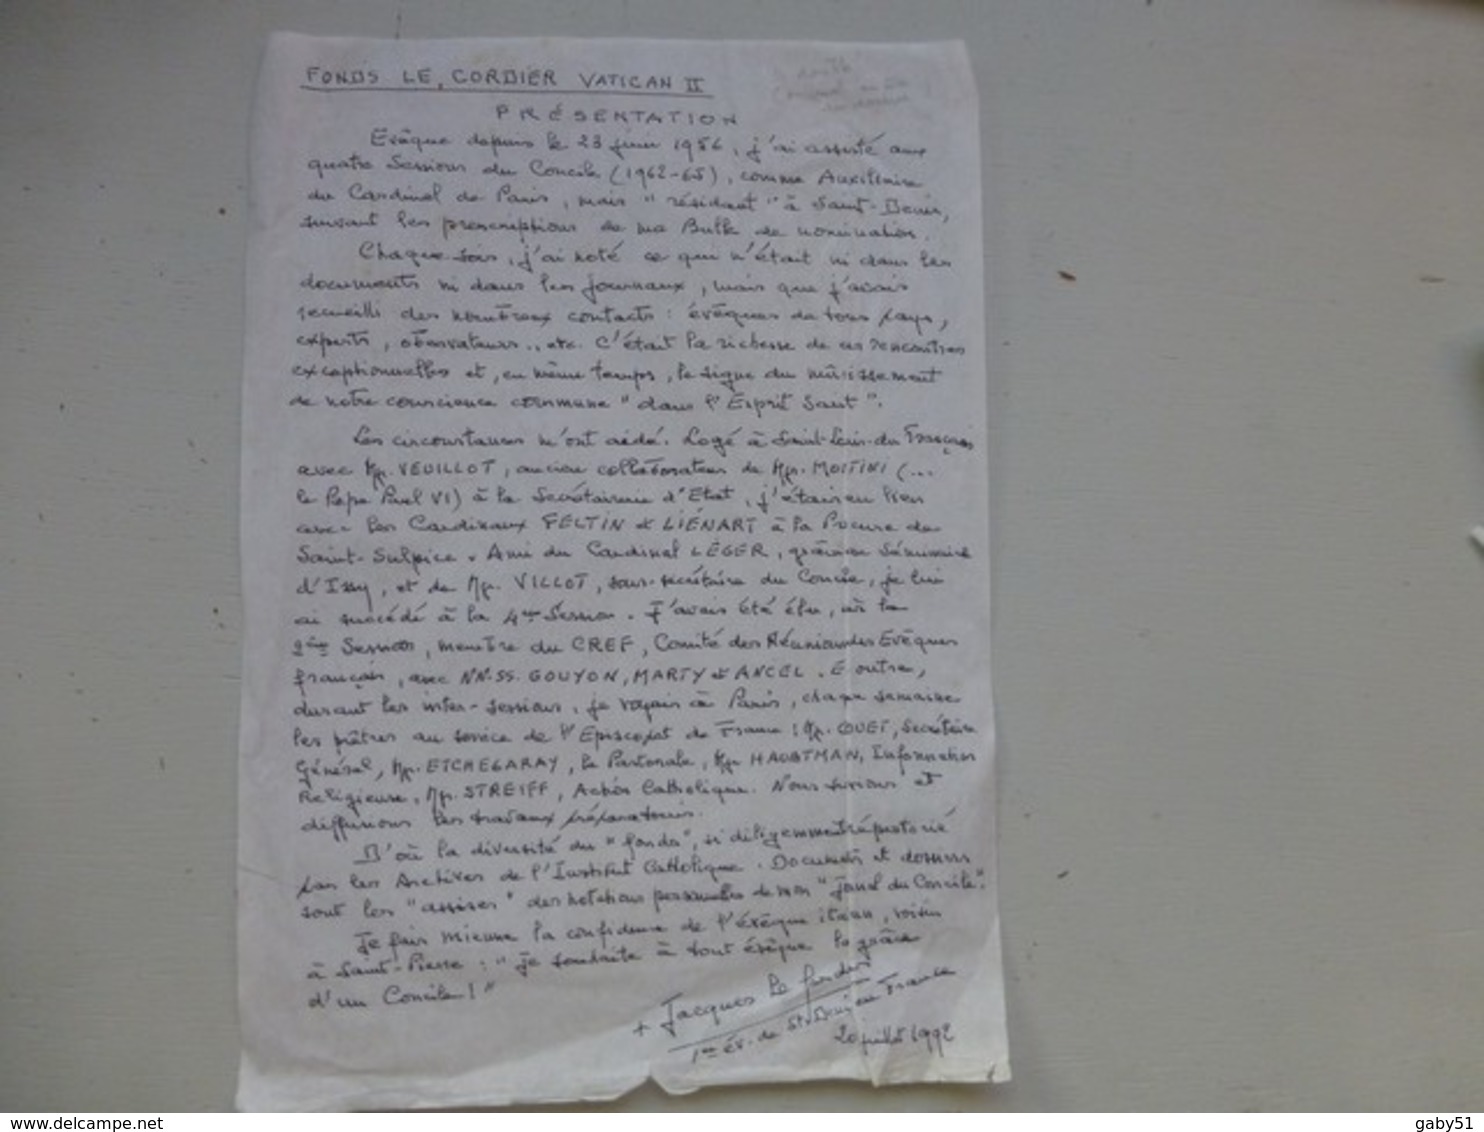 FONDS LE CORDIER VATICAN II
PRÉSENTATION
Evêque depuis le 23 juin 1956, j'ai assisté aux
quatre Sessions du Concile (1962-65), comme Auxiliaire
du Cardinal de Paris, mais "résidant" à Saint-Denis,
suivant les prescriptions de ma Bulle de nomination.
Chaque soir, j'ai noté ce qui n'était ni dans les
documents ni dans les journaux, mais que j'avais
recueilli des nombreux contacts : évêques de tous pays,
experts, observateurs.. etc. C'était la richesse de ces rencontres
exceptionnelles et, en même temps, le signe du mûrissement
de notre conscience commune "dans l'Esprit Saint".
Les circonstances m'ont aidé. Logé à Saint-Louis-des Français
avec Mgr. VEUILLOT, ancien collaborateur de Mgr. MONTINI (...
le Pape Paul VI) à la Secrétairerie d'Etat, j'étais en lien
avec les Cardinaux FELTIN et LIÉNART à la Procure de
Saint-Sulpice. Ami du Cardinal LÉGER, Séminaire
d'Issy, et de Mgr. VILLOT, sous-secrétaire du Concile, je lui
ai succédé à la 4ème Session. J'avais été élu, à la
2ème Session, membre du CREF, Comité des Réunions des Evêques
français, avec NN.SS. GOUYON, MARTY et ANCEL. E outre,
durant les inter-sessions, je voyais à Paris, chaque semaine
les prêtres au service de l'Episcopat de France : Mgr. GOUET, Secrétaire
Général, Mgr. ETCHEGARAY, la Pastorale, Mgr HAUBTMAN, Information
Religieuse, Mgr. STREIFF, Action Catholique. Nous suivions et
diffusions les travaux préparatoires.
D'où la diversité du "fonds", si diligemment répertorié
par les Archives de l'Institut Catholique. Documents et dossiers
sont les "assises" des notations personnelles de mon "Jounal du Concile".
Je fais mienne la confidence de l'évêque voisin
à Saint-Pierre : "je souhaite à tout évêque la grâce
d'un Concile !"
+ Jacques Le Cordier
1er év. de St-Denis en France
20 juillet 1992
www.delcampe.net
gaby51